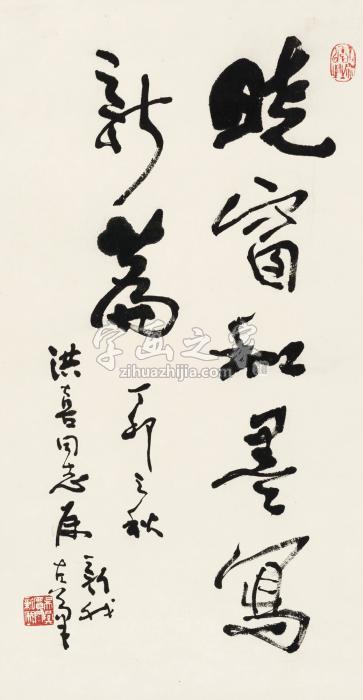 晓窗和墨写
新篇
丁卯之秋
洪喜同志属
字画之家
zihuazhijia.com